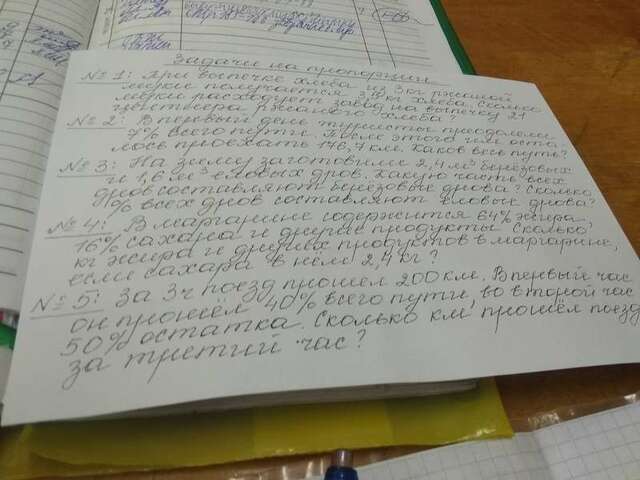 Задачи на пропорции
№ 1: При выпечке хлеба из 3 кг ржаной
муки получается 3,9 кг хлеба. Сколько
муки расходует завод на выпечку 21
центнера ржаного хлеба?
№ 2: В первый день туристы преодолели
7% всего пути. После этого им оста
лось проехать 176,7 км. Каков весь путь?
№ 3: На зиму заготовили 2,4 м³ берёзовых
и 1,6 м³ еловых дров. Какую часть всех
дров составляют берёзовые дрова? Сколько
% всех дров составляют еловые дрова?
№ 4: В маргарине содержится 64% жира,
16% сахара и другие продукты. Сколько
кг жира и других продуктов в маргарине,
если сахара в нём 2,4 кг?
№ 5: За 3 ч поезд прошёл 200 км. В первый час
он прошёл 40% всего пути, во второй час
50% остатка. Сколько км прошёл поезд
за третий час?